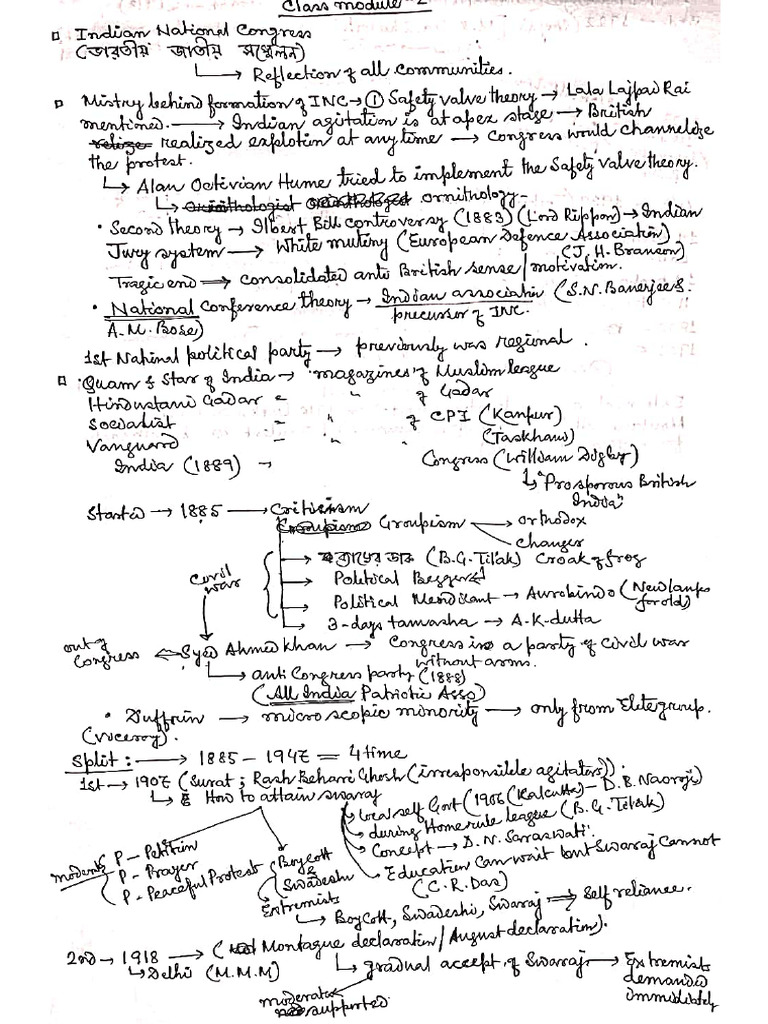 Class module - 2
Indian National Congress
(ভারতীয় জাতীয় সম্মেলন)
Reflection of all communities.
Mistry behind formation of INC → ① Safety valve theory → Lala Lajpad Rai
mentioned. → Indian agitation is at apex stage → British
realized explotion at any time → Congress would channelize
the protest.
Alan Octivian Hume tried to implement the Safety valve theory.
ornithology-
• Second theory → Ilbert Bill controversy (1883) (Lord Rippon) → Indian
Jury system → White mutiny (European Defence Association)
(J. H. Branson)
Tragic end → consolidated anti British sense/motivation.
• National Conference theory → Indian associatin (S.N. Banerjee &
A.M. Bose) precursor of INC.
1st National political party → previously was regional.
Quam & Star of India → magazines of Muslim league
Hindustani Gadar = " of Gadar
Socialist = " of CPI (Kanpur)
Vanguard = " " (Taskhand)
India (1889) → Congress (William Digby)
"Prosporous British
India"
Started → 1885 → Criticism
Groupism → orthodox
changer
ব্যাঙের ডাক (B.G. Tilak) Croak of frog
Political Begger
Civil
war
Political Mendicant → Aurobindo (New lamps
for old)
3-days tamasha → A.K. dutta
out of
Congress ← Syed Ahmed khan → Congress is a party of civil war
without arms.
anti Congress party (1888)
(All India Patriotic Asso)
• Duffrin → microscopic minority → only from Elite group.
(viceroy).
Split: → 1885 - 1947 = 4 time
1st → 1907 (Surat ; Rash Behari Ghosh (irresponsible agitators))
How to attain swaraj
local self Govt (1906 (Kalcutta) - D. B. Naoroji)
during Homerule league (B.G. Tilak)
Concept → D. N. Saraswati.
Education Can wait but Swaraj Cannot
(C.R. Das)
moderate P - Petition
P - Prayer
P - Peaceful Protest
Boycott
&
Swadeshi
Extremists
Boycott, Swadeshi, Swaraj ⇒ Self reliance.
2nd → 1918 → (Montague declaration / August declaration).
Delhi (M.M.M)
gradual accept. of Swaraj → Extremists
demanded
immediately
moderates
supported